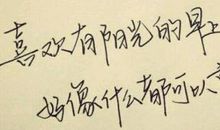 喜欢有阳光的早
好像什么都可以